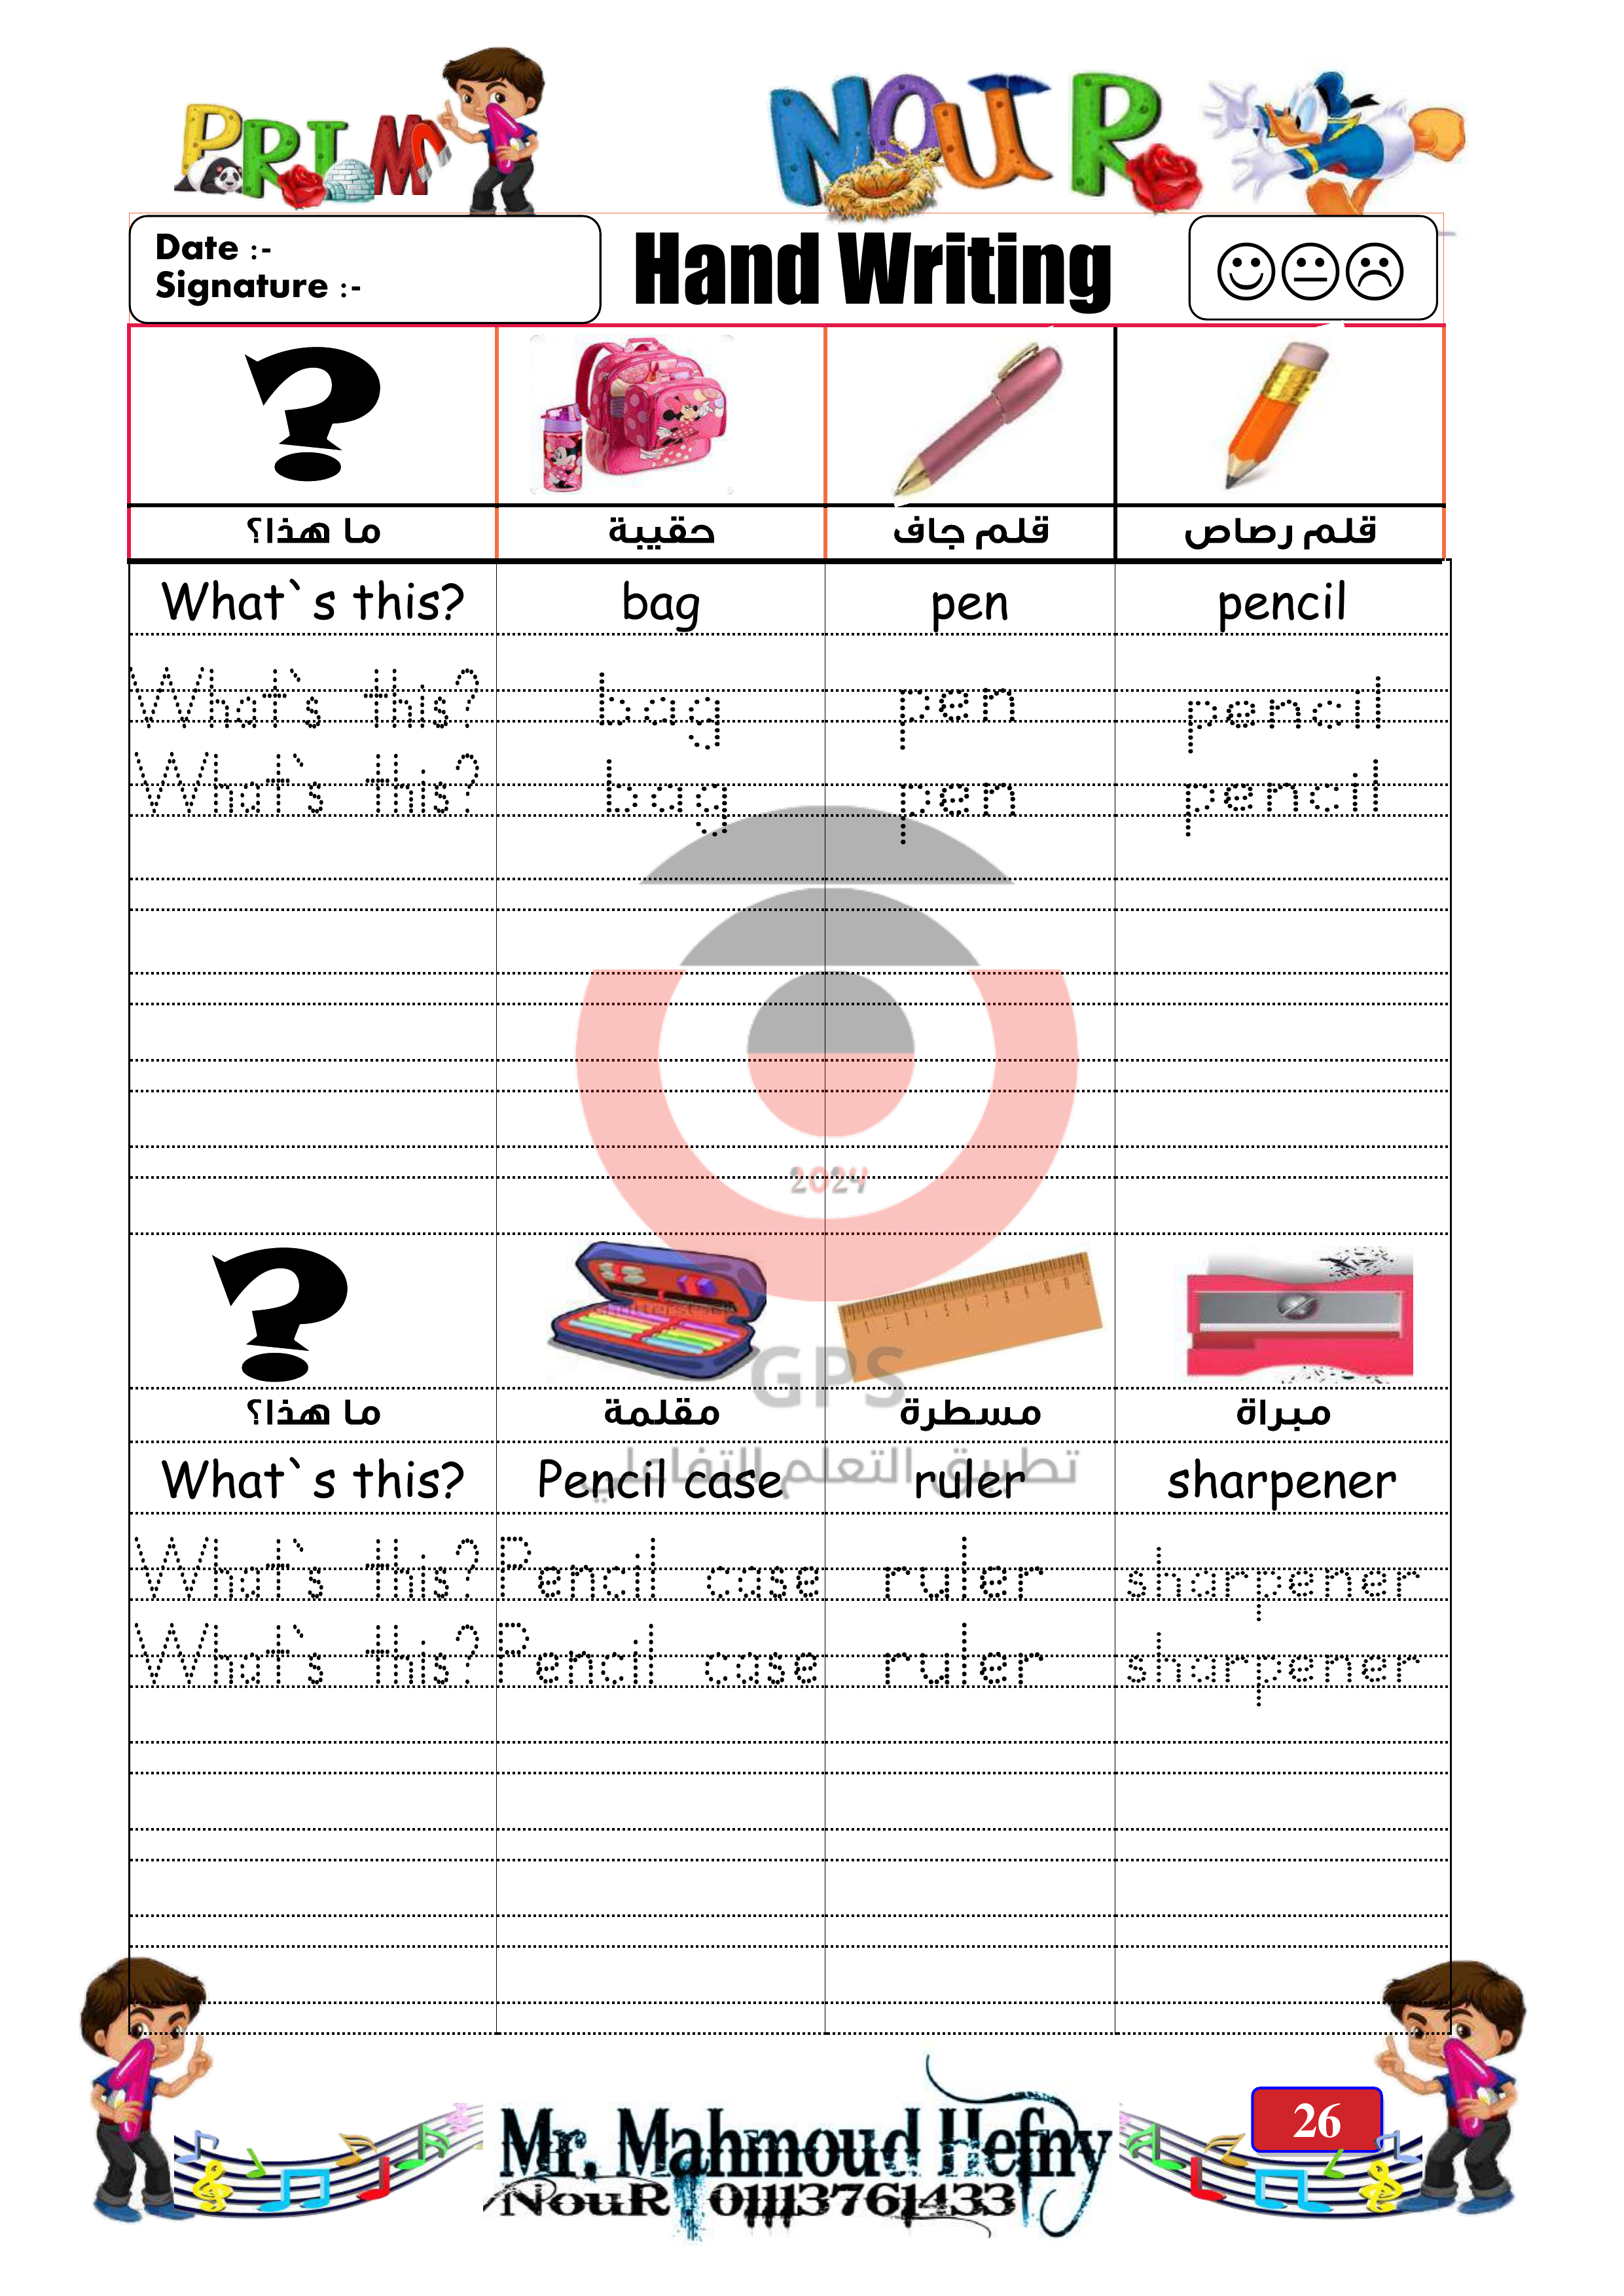 PRIM 1 NOUR
Date :-
Signature :-
Hand Writing
ما هذا؟ حقيبة قلم جاف قلم رصاص
What`s this? bag pen pencil
What`s this? bag pen pencil
What`s this? bag pen pencil
2024
GPS
ما هذا؟ مقلمة مسطرة مبراة
تطبيق التعلم التفاعلي
What`s this? Pencil case ruler sharpener
What`s this? Pencil case ruler sharpener
What`s this? Pencil case ruler sharpener
26
Mr. Mahmoud Hefny
NouR 01113761433